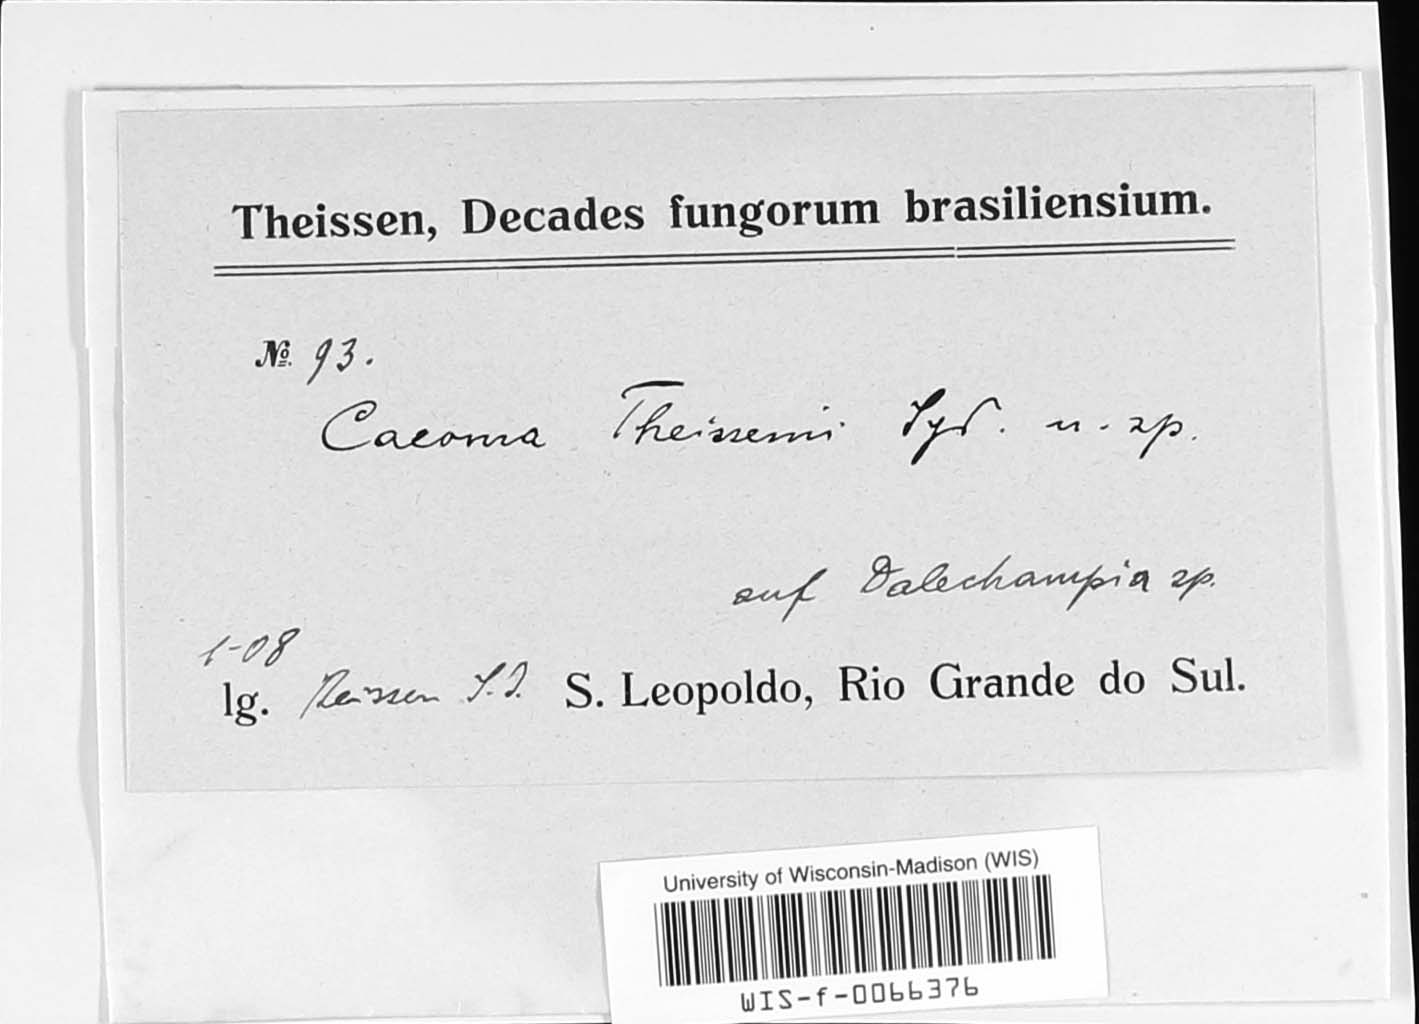 Theissen, Decades fungorum brasiliensium.
№ 93.
Caeoma Theissenii Syd. n. sp.
auf Dalechampia sp.
1-08
lg. Theissen S.J. S. Leopoldo, Rio Grande do Sul.
University of Wisconsin-Madison (WIS)
WIS-f-0066376